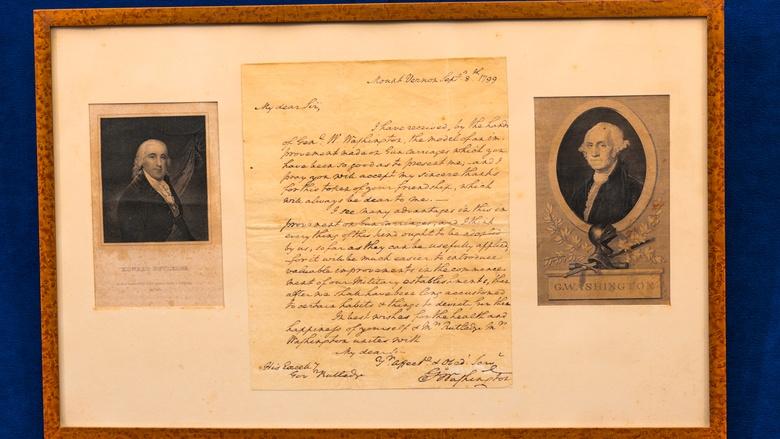 Mount Vernon Sepr. 8th 1799
My dear Sir,
I have received, by the hands
of Genl. W. Washington, the model of an im-
provement made on Gun carriages which you
have been so good as to present me, and I
pray you will accept my sincere thanks
for this token of your friendship, which
will always be dear to me. —
I see many advantages in this im
provement on Gun Carriages, and I think
everything of this kind ought to be adopted
by us, so far as they can be usefully applied,
for it will be much easier to introduce
valuable improvements in the commence-
ment of our Military establishments, than
after we shall have been long accustomed
to certain habits or things to deviate from them
In best wishes for the health and
happiness of yourself & Mrs. Rutledge Mrs.
Washington unites with
My dear Sir
Yr. Affecte. & Obed. Servt
His Excely.
Govr. Rutledge
Go Washington
EDWARD RUTLEDGE
G. WASHINGTON